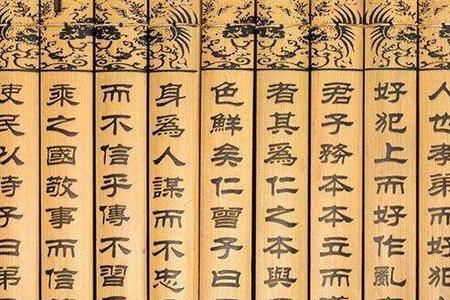 人也孝弟而
好犯上而好作亂
君子務本本立而
者其為仁之本與
色鮮矣仁曾子曰
身為人謀而不忠
而不信乎傳不習
乘之國敬事而信
使民以時子曰弟